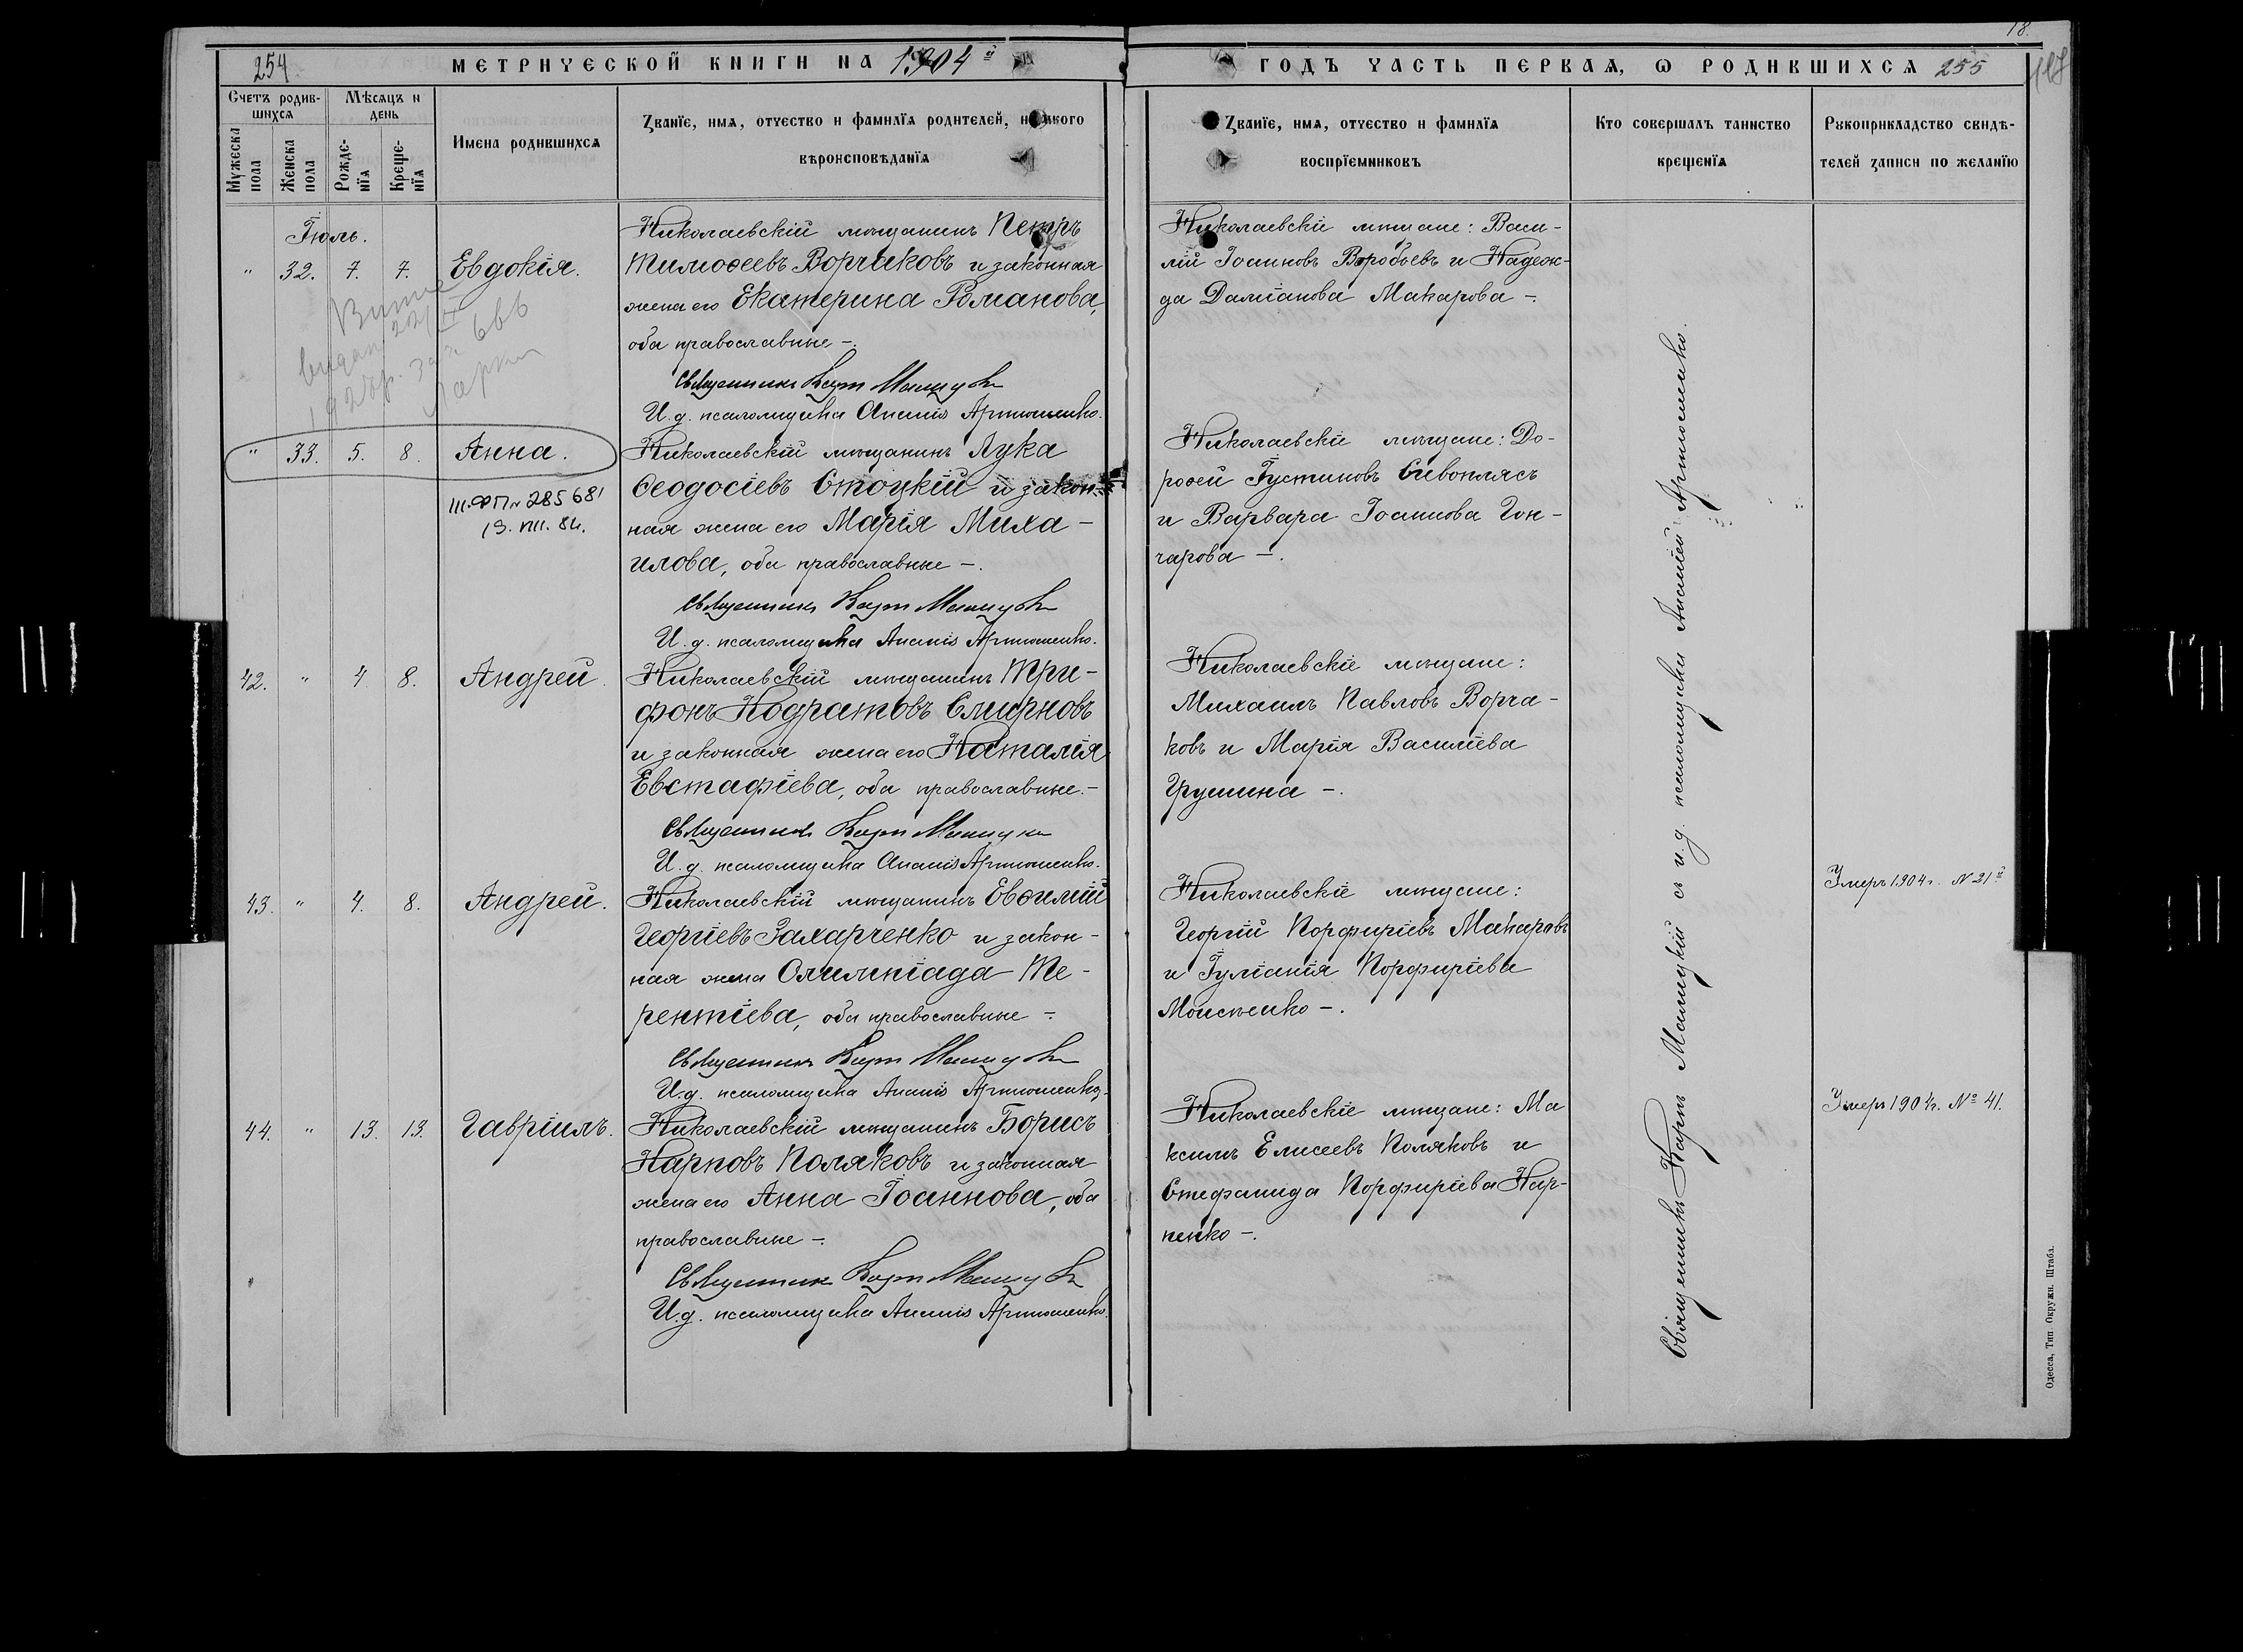 18.
254
МЕТРИЧЕСКОЙ КНИГИ НА 1904й
ГОДЪ ЧАСТЬ ПЕРВАЯ, Ѡ РОДИВШИХСЯ 255
Счетъ родив-
шихся
Мѣсяцъ и
день
Мужеска
пола
Женска
пола
Рожде-
нія
Креще-
нія
Имена родившихся
Званіе, имя, отчество и фамилія родителей, и какого
вѣроисповѣданія
Званіе, имя, отчество и фамилія
воспріемниковъ
Кто совершалъ таинство
крещенія
Рукоприкладство свидѣ-
телей записи по желанію
Іюль.
" 32. 7. 7. Евдокія.
Николаевскій мѣщанинъ Петръ
Тимоѳеевъ Ворчаковъ и законная
жена его Екатерина Романова,
оба православные –.
Священникъ
И.д. псаломщика Ананія Артюшенко.
Николаевскіе мѣщане: Васи-
лій Іоанновъ Воробьевъ и Надеж-
да Даміанова Макарова –.
" 33. 5. 8. Анна.
III.ФП № 285681
13. VIII. 84.
Николаевскій мѣщанинъ Лука
Ѳеодосіевъ Стоцкій и закон-
ная жена его Марія Миха-
илова, оба православные –.
Священникъ
И.д. псаломщика Ананія Артюшенко.
Николаевскіе мѣщане: До-
роѳей Іустиновъ Сивоплясъ
и Варвара Іоаннова Гон-
чарова –.
42. " 4. 8. Андрей.
Николаевскій мѣщанинъ Три-
фонъ Кодратовъ Смирновъ
и законная жена его Наталія
Евстафіева, оба православные.–
Священникъ
И.д. псаломщика Ананія Артюшенко.
Николаевскіе мѣщане:
Михаилъ Павловъ Ворча-
ковъ и Марія Василіева
Грушина –.
43. " 4. 8. Андрей.
Николаевскій мѣщанинъ Евѳимій
Георгіевъ Захарченко и закон-
ная жена Олимпіада Те-
рентіева, оба православные –.
Священникъ
И.д. псаломщика Ананія Артюшенко.
Николаевскіе мѣщане:
Георгій Порфиріевъ Макаровъ
и Іуліанія Порфиріева
Моисѣенко –.
Умеръ 1904г. № 21й
44. " 13. 13. Гавріилъ.
Николаевскій мѣщанинъ Борисъ
Карповъ Поляковъ и законная
жена его Анна Іоаннова, оба
православные –.
Священникъ
И.д. псаломщика Ананія Артюшенко.
Николаевскіе мѣщане: Ма
ксимъ Елисеевъ Поляковъ и
Стефанида Порфиріева Кар-
пенко –.
Умеръ 1904г. № 41.
Священникъ Карпъ Машицкій съ и.д. псаломщика Ананіей Артюшенко.
Одесса, Тип. Окружн. Штаба.